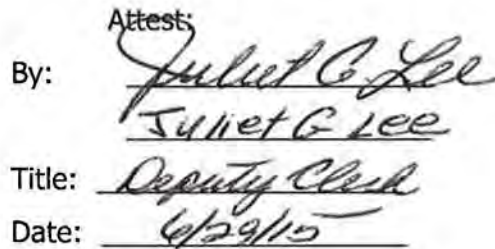 Attest:
By: Juliet G. Lee
Juliet G Lee
Title: Deputy Clerk
Date: 6/29/15